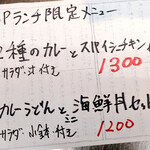 Pランチ限定メニュー
2種のカレーとスパイシーチキン
サラダ・汁付き
1300
カレーうどんとミニ海鮮丼セット
サラダ 小鉢 付き
1200